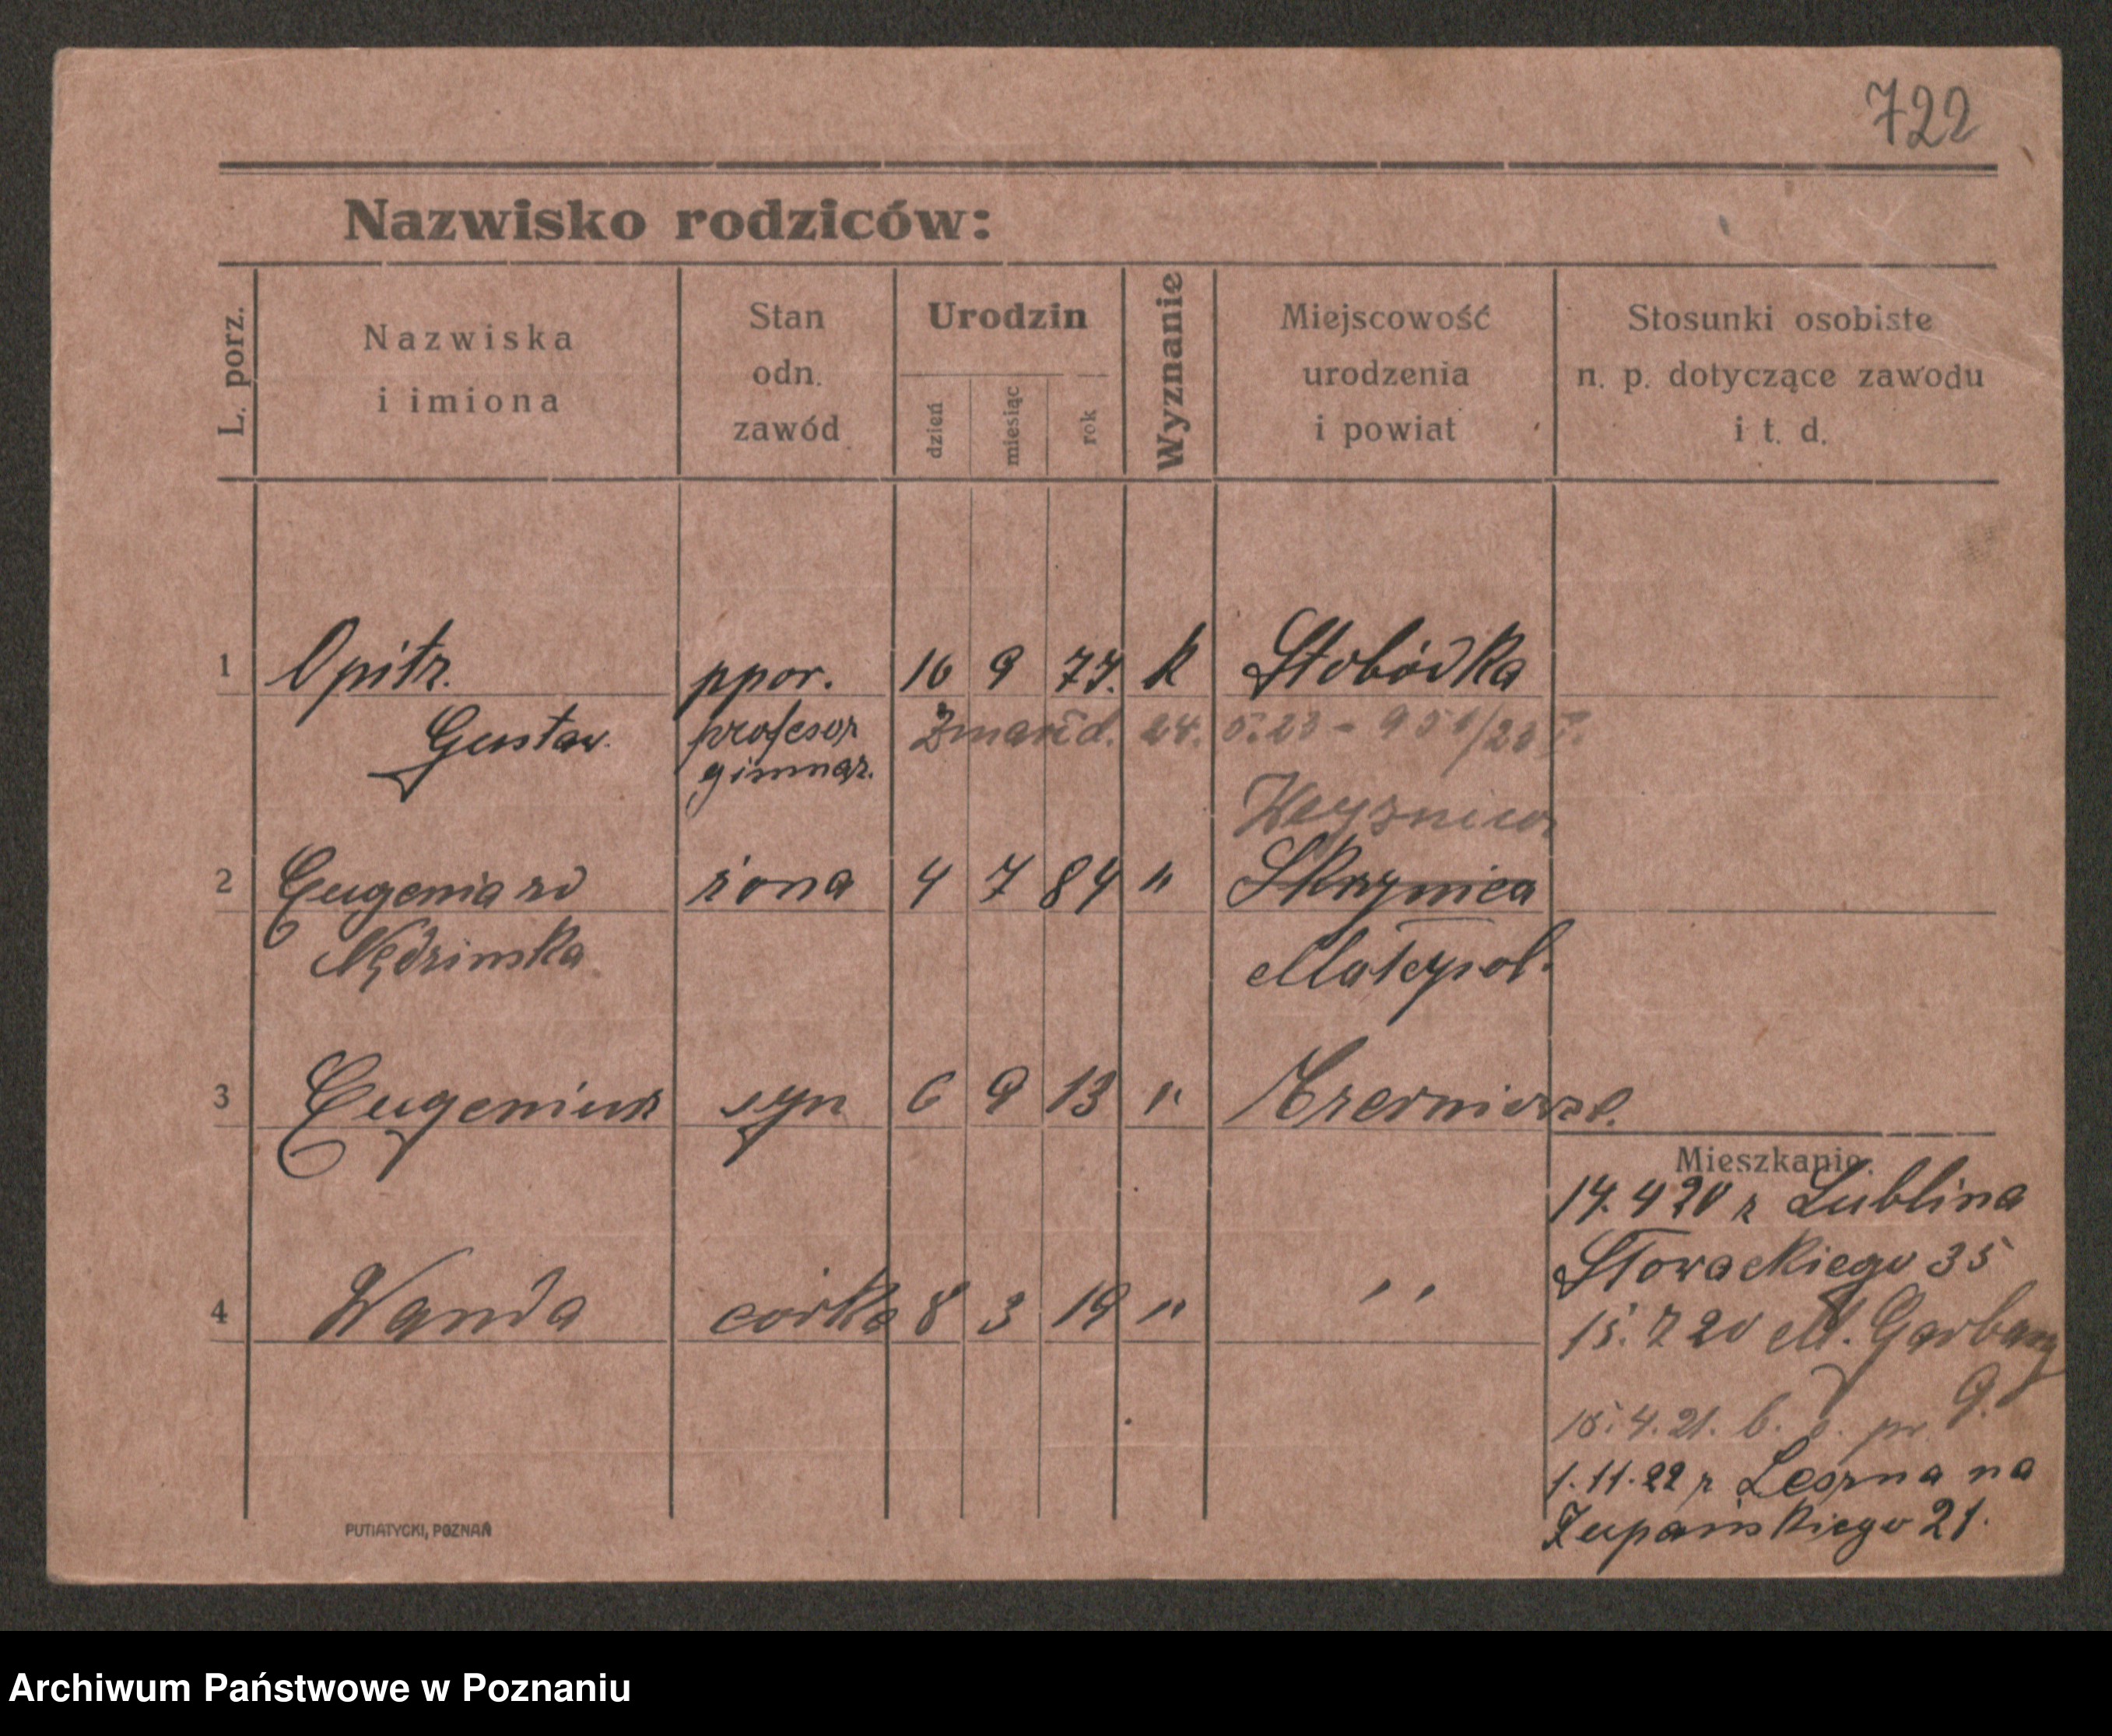 722
Nazwisko rodziców:
L. porz.
Nazwiska
i imiona
Stan
odn.
zawód
Urodzin
dzień
miesiąc
rok
Wyznanie
Miejscowość
urodzenia
i powiat
Stosunki osobiste
n. p. dotyczące zawodu
i t. d.
1 Opitz. ppor. 16 9 77. k Słobódka
Gustaw. profesor
gimnaz.
Zmarł d. 24. 5. 23 - 951/23
2 Eugenia zd żona 4 7 84 " Skrzynica
Nędzinska Małopol.
3 Eugeniusz syn 6 9 13 "
Mieszkanie.
14. 4 20 z Lublina
Słowackiego 35
4 Wanda córka 8 3 19 " "
15. 7 20 M. Garbary
9.
15. 4. 21.
1. 11. 22 z Leszna na
Żupańskiego 21.
PUTIATYCKI, POZNAŃ
Archiwum Państwowe w Poznaniu